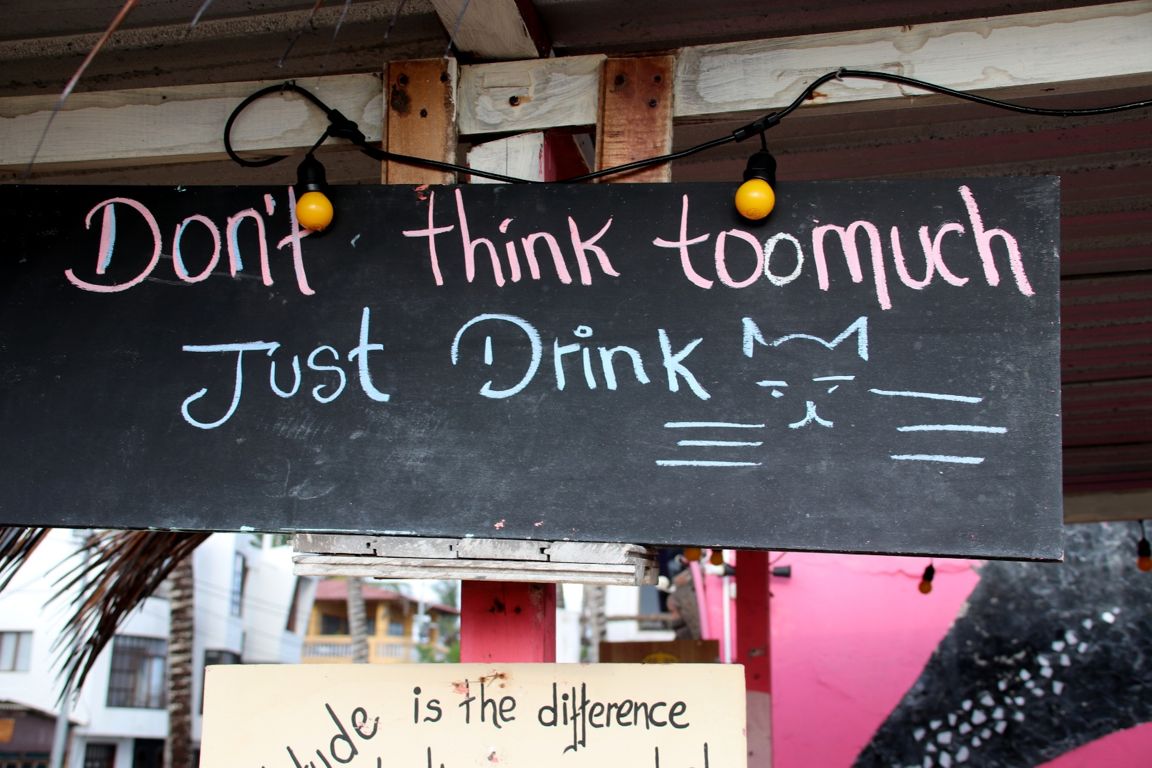 Don't think toomuch
Just Drink
is the difference